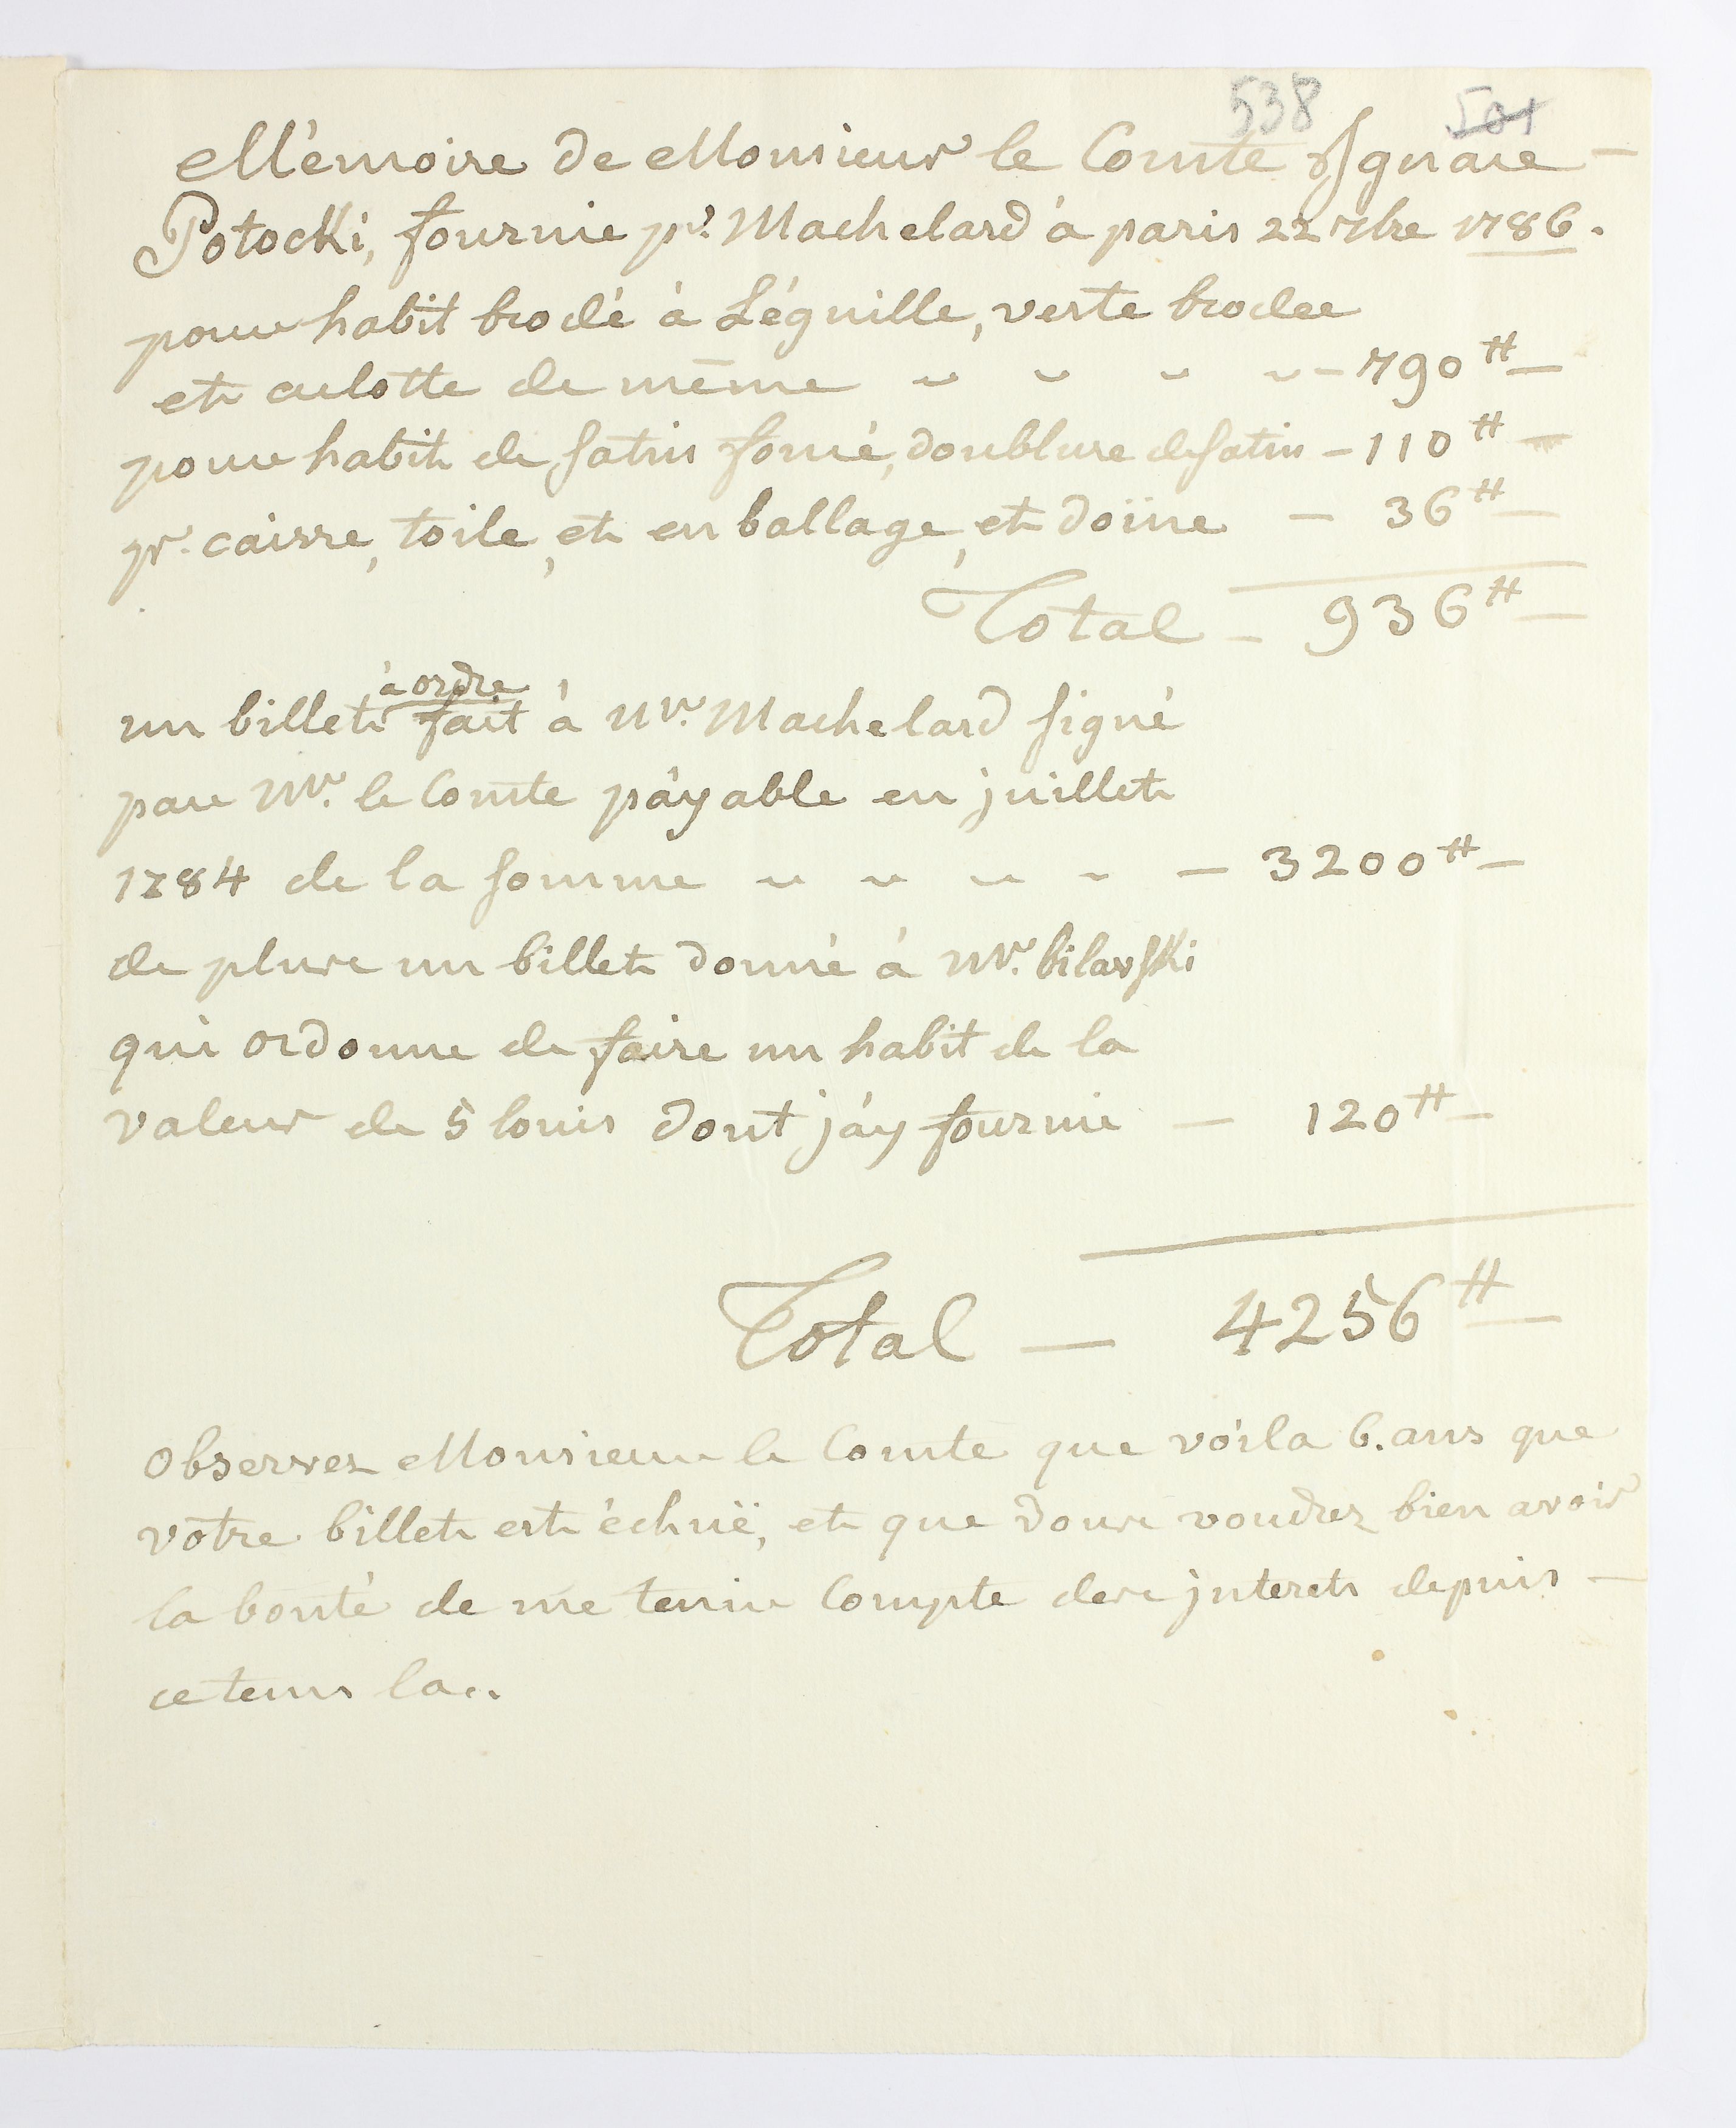 538 501
Mémoire de Monsieur le Comte Ignace
Potocki, fournie pr. Machelard à paris 22 7bre 1786.
pour habit brodé à Léguille, veste brodee
et culotte de même " " " " - 790 ₶ -
pour habit de satin foncé, doublure de satin - 110 ₶ -
pr. caisse, toile, et en ballage, et doüne - 36 ₶ -
Total - 936 ₶ -
à ordre
un billet fait à Mr. Machelard signé
par Mr. le Comte payable en juillet
1784 de la somme " " " " - 3200 ₶ -
de plus un billet donné à Mr. bilarski
qui ordonne de faire un habit de la
valeur de 5 louis dont j'ay fournie - 120 ₶ -
Total - 4256 ₶ -
observez Monsieur le Comte que voila 6. ans que
votre billet est échuë, et que vous voudrez bien avoir
la bonté de me tenir Compte des jnterets depuis -
ce tems la..